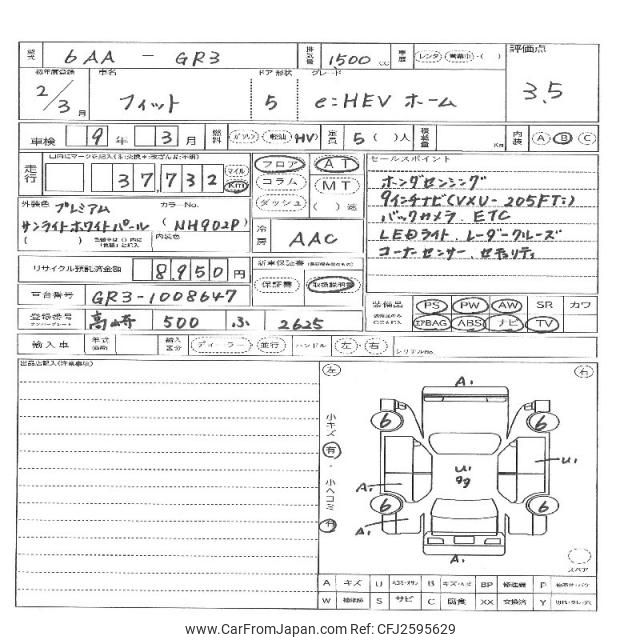 型式 6AA - GR3 排気量 1500 cc 車歴 レンタ・営業中・( ) 評価点
初年度登録 車名 ドア 形状 グレード
2/3月 フィット 5 e:HEV ホーム 3.5
車検 9年 3月 燃料 ガソリン 軽油 HV 定員 5 ( )人 積載量 Kg 内装 A B C
走行 37,732 マイル Km フロア AT セールスポイント
コラム MT ホンダセンシング
ダッシュ ( )速 9インチナビ(VXU-205FTi)
外装色 プレミアム カラーNo. バックカメラ、ETC
サンライトホワイトパール (NH902P) 冷房 AAC LEDライト、レーダークルーズ
( ) 内装色 コーナーセンサー、セキュリティ
リサイクル預託済金額 8,950円 新車保証書
保証書 取扱説明書
車台番号 GR3-1008647 装備品 PS PW AW SR カワ
登録番号 高崎 500 ふ 2625 エアBAG ABS ナビ TV
輸入車 年式 輸入区分 ディーラー・並行 ハンドル 左・右 シリアルNo.
出品店記入(注意事項) 左 右
小キズ 有・小ヘコミ 有
A1
6 6
U1 99 U1
A1
6 6
A1
A1
スペア
A キズ U B BP 修理機 P
W 補修跡 S サビ C 腐食 XX 交換済 Y
www.CarFromJapan.com - Ref No. CFJ2595629